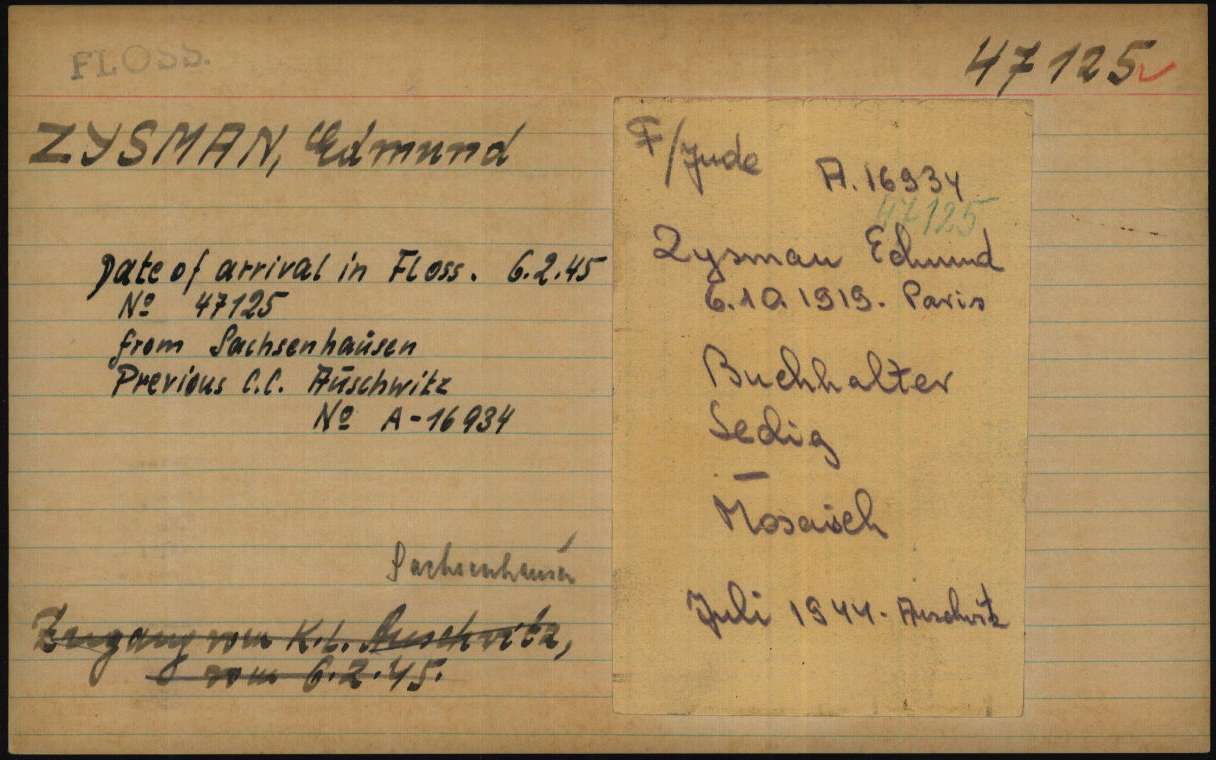 FLOSS.
47125
ZYSMAN, Edmund
Date of arrival in Floss. 6.2.45
No 47125
from Sachsenhausen
Previous C.C. Auschwitz
No A-16934
Sachsenhausen
Zugang vom K.L. Auschwitz,
vom 6.2.45.
F/Jude
A.16934
47125
Zysman Edmund
6.10 1919. Paris
Buchhalter
Ledig
—
Mosaisch
Juli 1944. Auschwitz